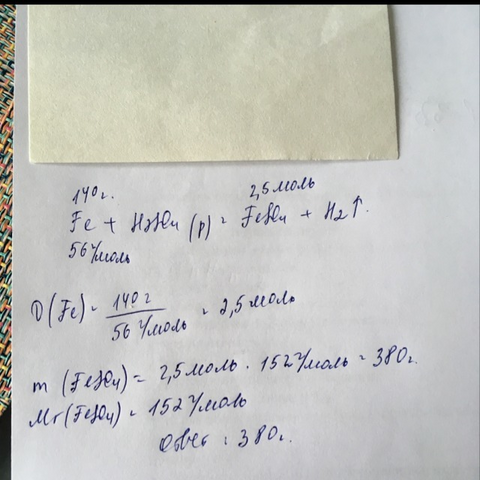 140 г. 2,5 моль
Fe + H2SO4 (р) = FeSO4 + H2↑.
56 г/моль
υ(Fe) = 140 г / 56 г/моль = 2,5 моль
m (FeSO4) = 2,5 моль · 152 г/моль = 380 г.
Mr(FeSO4) = 152 г/моль
Ответ: 380 г.